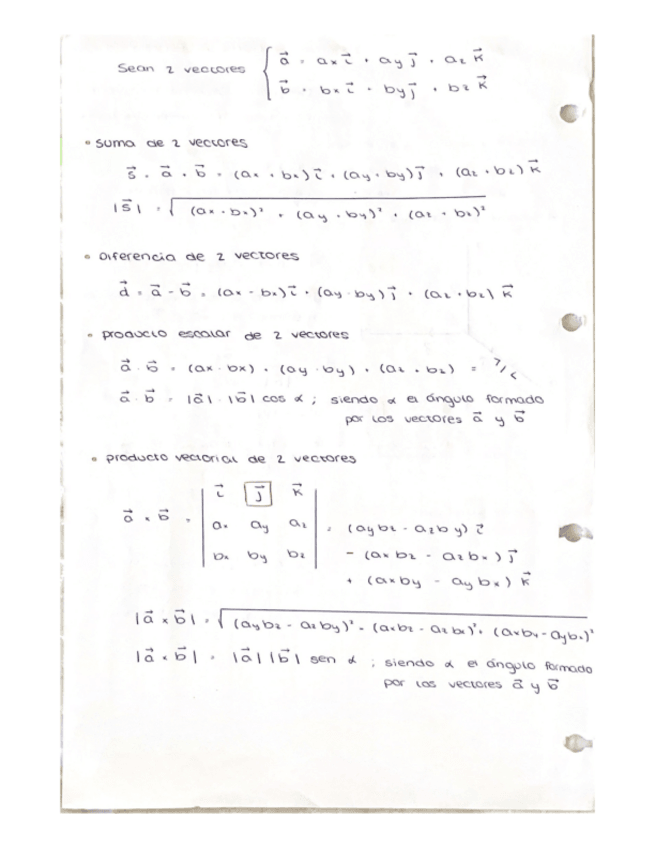 Sean 2 vectores { a⃗ = ax i⃗ + ay j⃗ + az k⃗
b⃗ = bx i⃗ + by j⃗ + bz k⃗
• suma de 2 vectores
s⃗ = a⃗ + b⃗ = (ax + bx) i⃗ + (ay + by) j⃗ + (az + bz) k⃗
|s⃗| = √((ax + bx)² + (ay + by)² + (az + bz)²)
• Diferencia de 2 vectores
d⃗ = a⃗ - b⃗ = (ax - bx) i⃗ + (ay - by) j⃗ + (az - bz) k⃗
• producto escalar de 2 vectores
a⃗ · b⃗ = (ax · bx) + (ay · by) + (az · bz) =
a⃗ · b⃗ = |a⃗| · |b⃗| cos α ; siendo α el ángulo formado
por los vectores a⃗ y b⃗
• producto vectorial de 2 vectores
i⃗ j⃗ k⃗
a⃗ × b⃗ = | ax ay az | = (aybz - azby) i⃗
bx by bz - (axbz - azbx) j⃗
+ (axby - aybx) k⃗
|a⃗ × b⃗| = √((aybz - azby)² - (axbz - azbx)² + (axby - aybx)²)
|a⃗ × b⃗| = |a⃗| |b⃗| sen α ; siendo α el ángulo formado
por los vectores a⃗ y b⃗